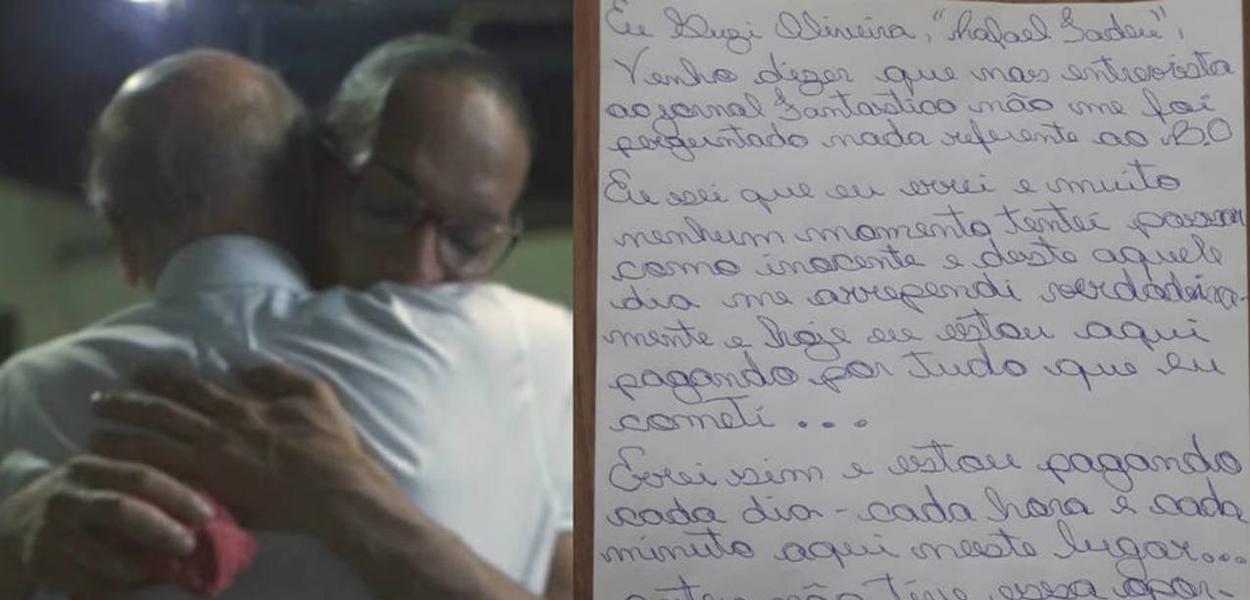 Eu Suzi Oliveira, "Rafael Tadeu",
Venho dizer que nas entrevista
ao jornal fantastico não me foi
perguntado nada referente ao B.O
Eu sei que eu errei e muito
nenhum momento tentei passar
como inocente e deste aquele
dia me arrependi verdadeira-
mente e hoje eu estou aqui
pagando por tudo que eu
cometi ...
Errei sim e estou pagando
cada dia - cada hora e cada
minuto aqui neste lugar...
antes não tive essa opor-